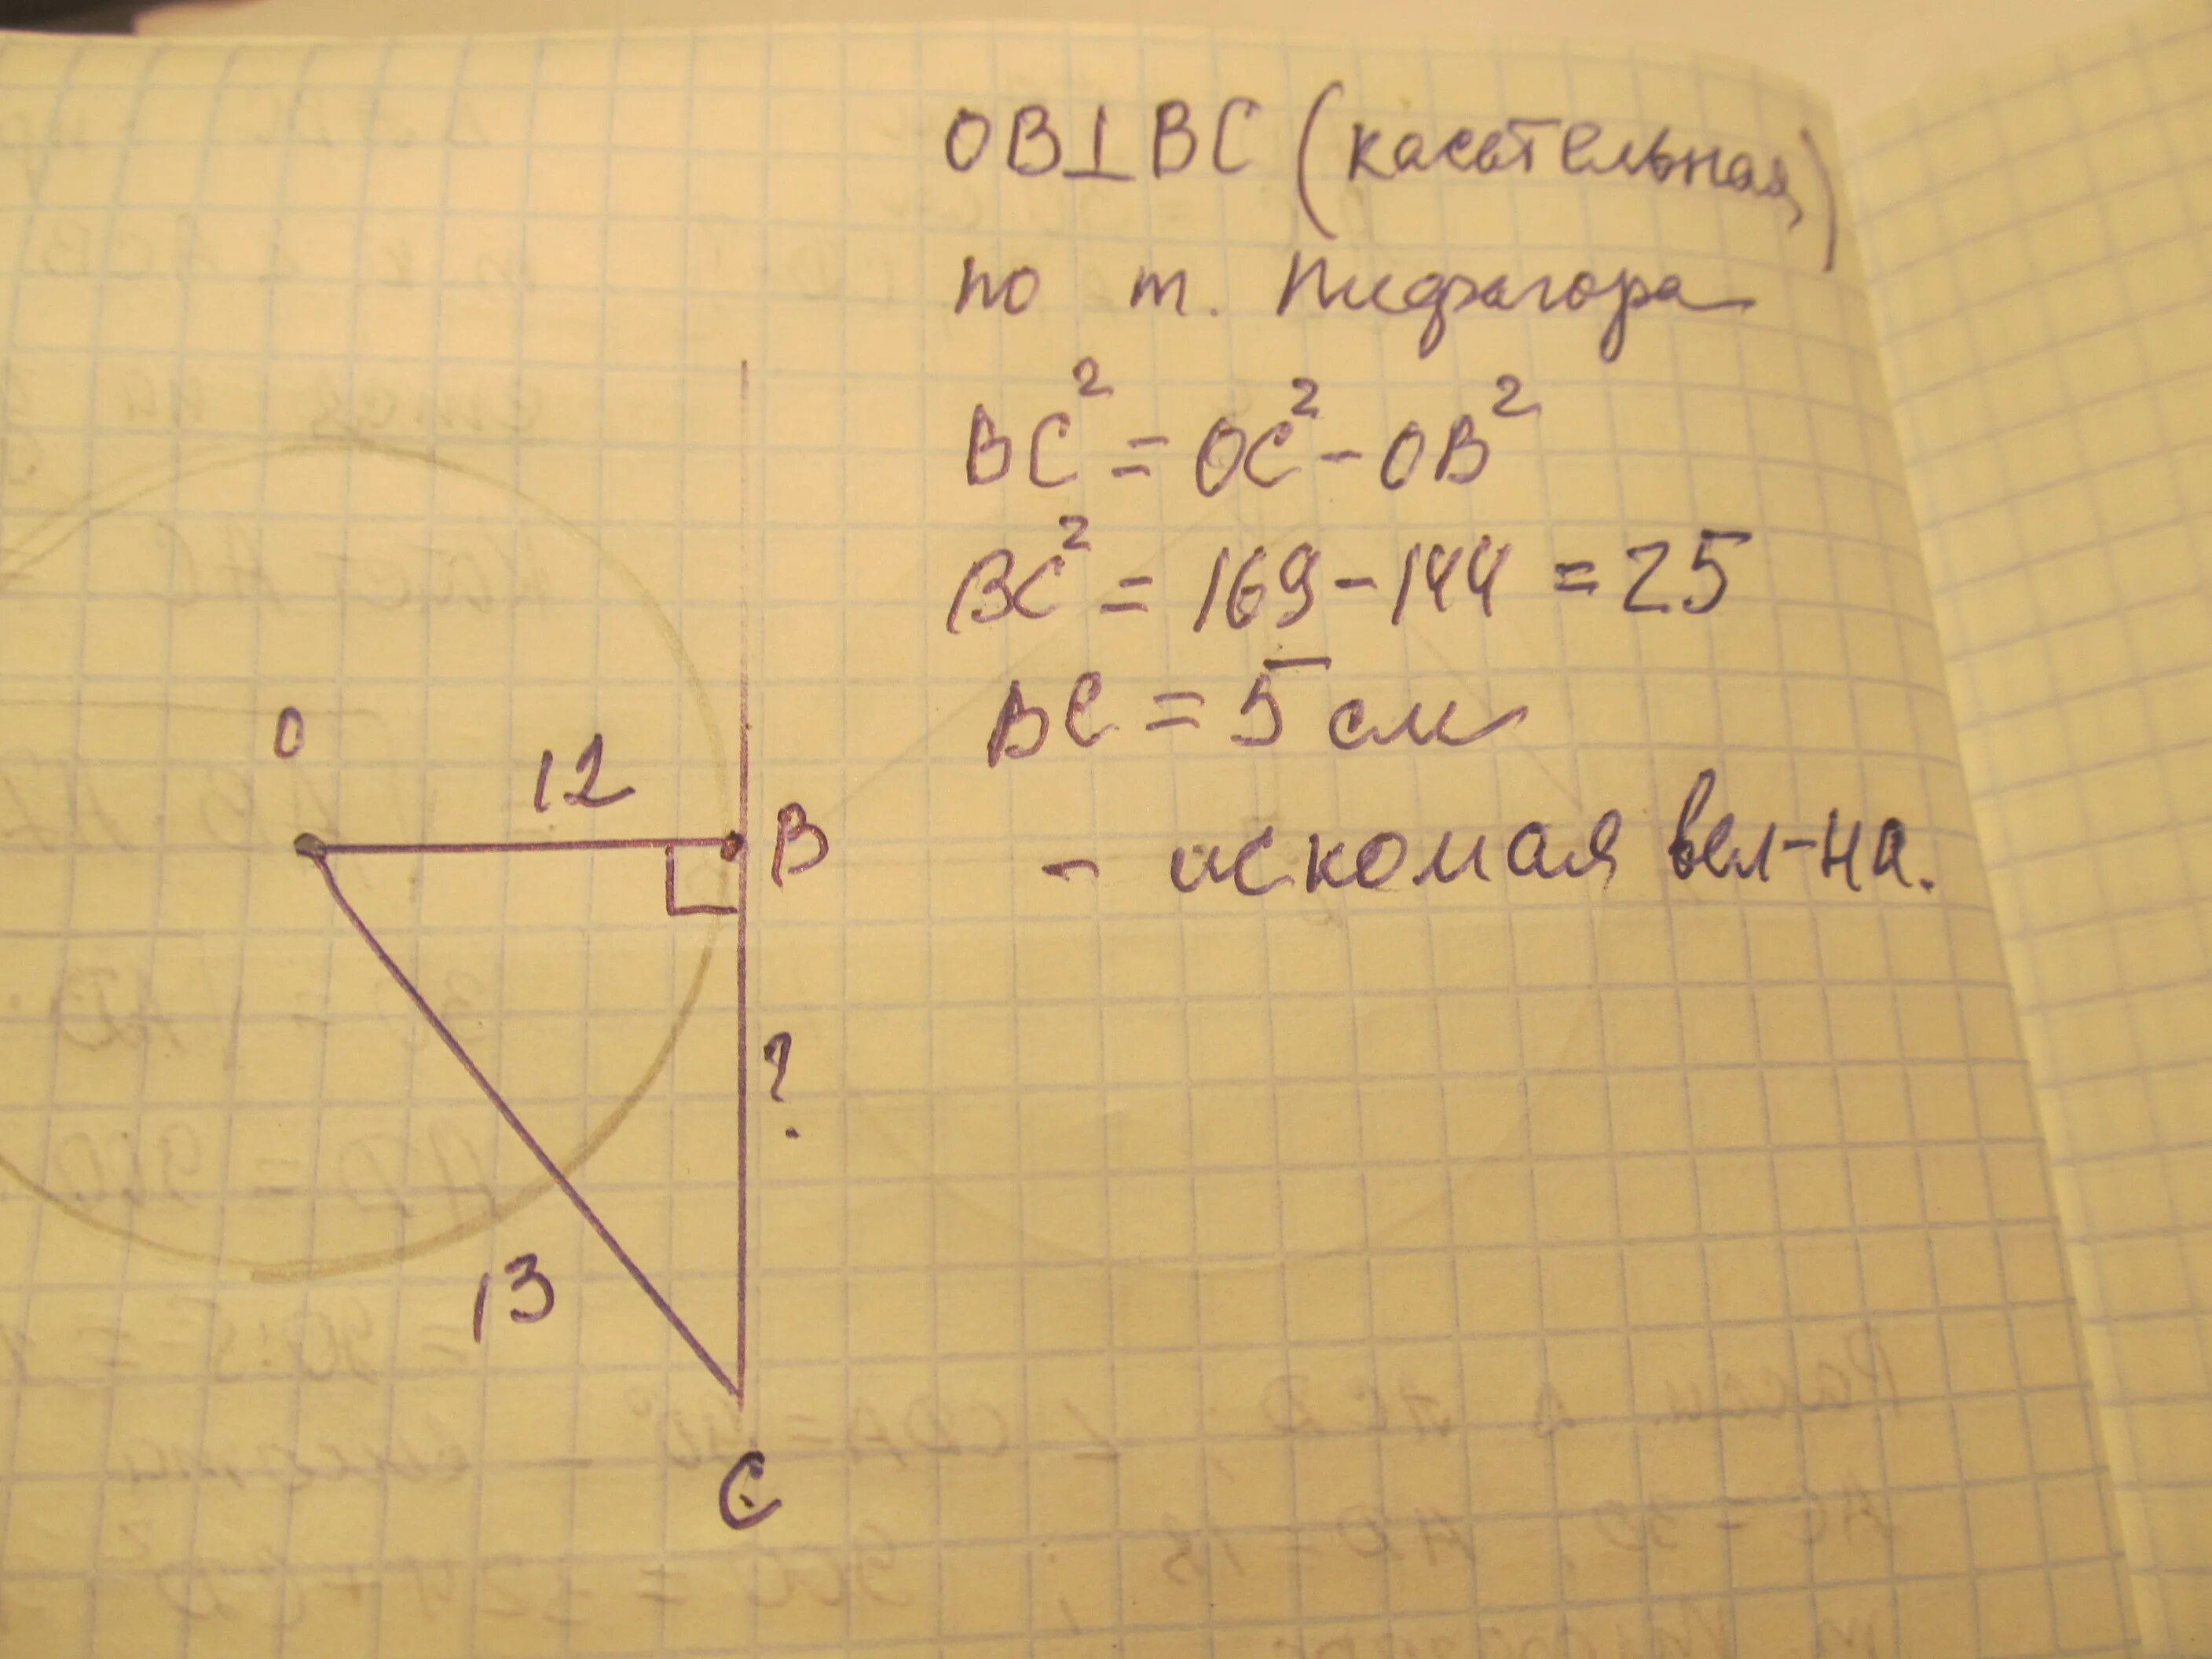 OB⊥BC (касательная)
по т. Пифагора
BC² = OC² - OB²
BC² = 169 - 144 = 25
BC = 5 см
- искомая вел-на.
O
12
B
?
13
C